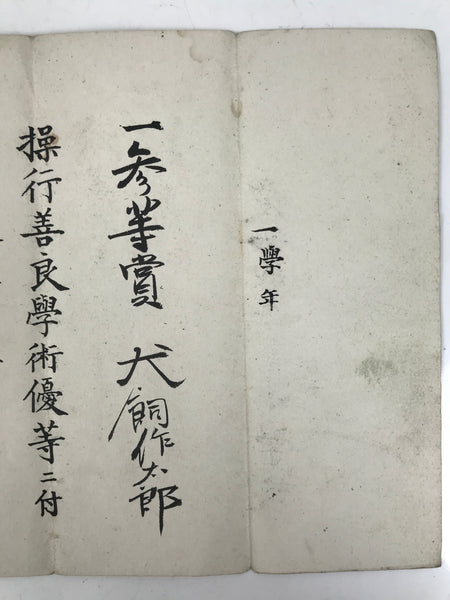 一學年
一参等賞 犬飼作太郎
操行善良學術優等ニ付